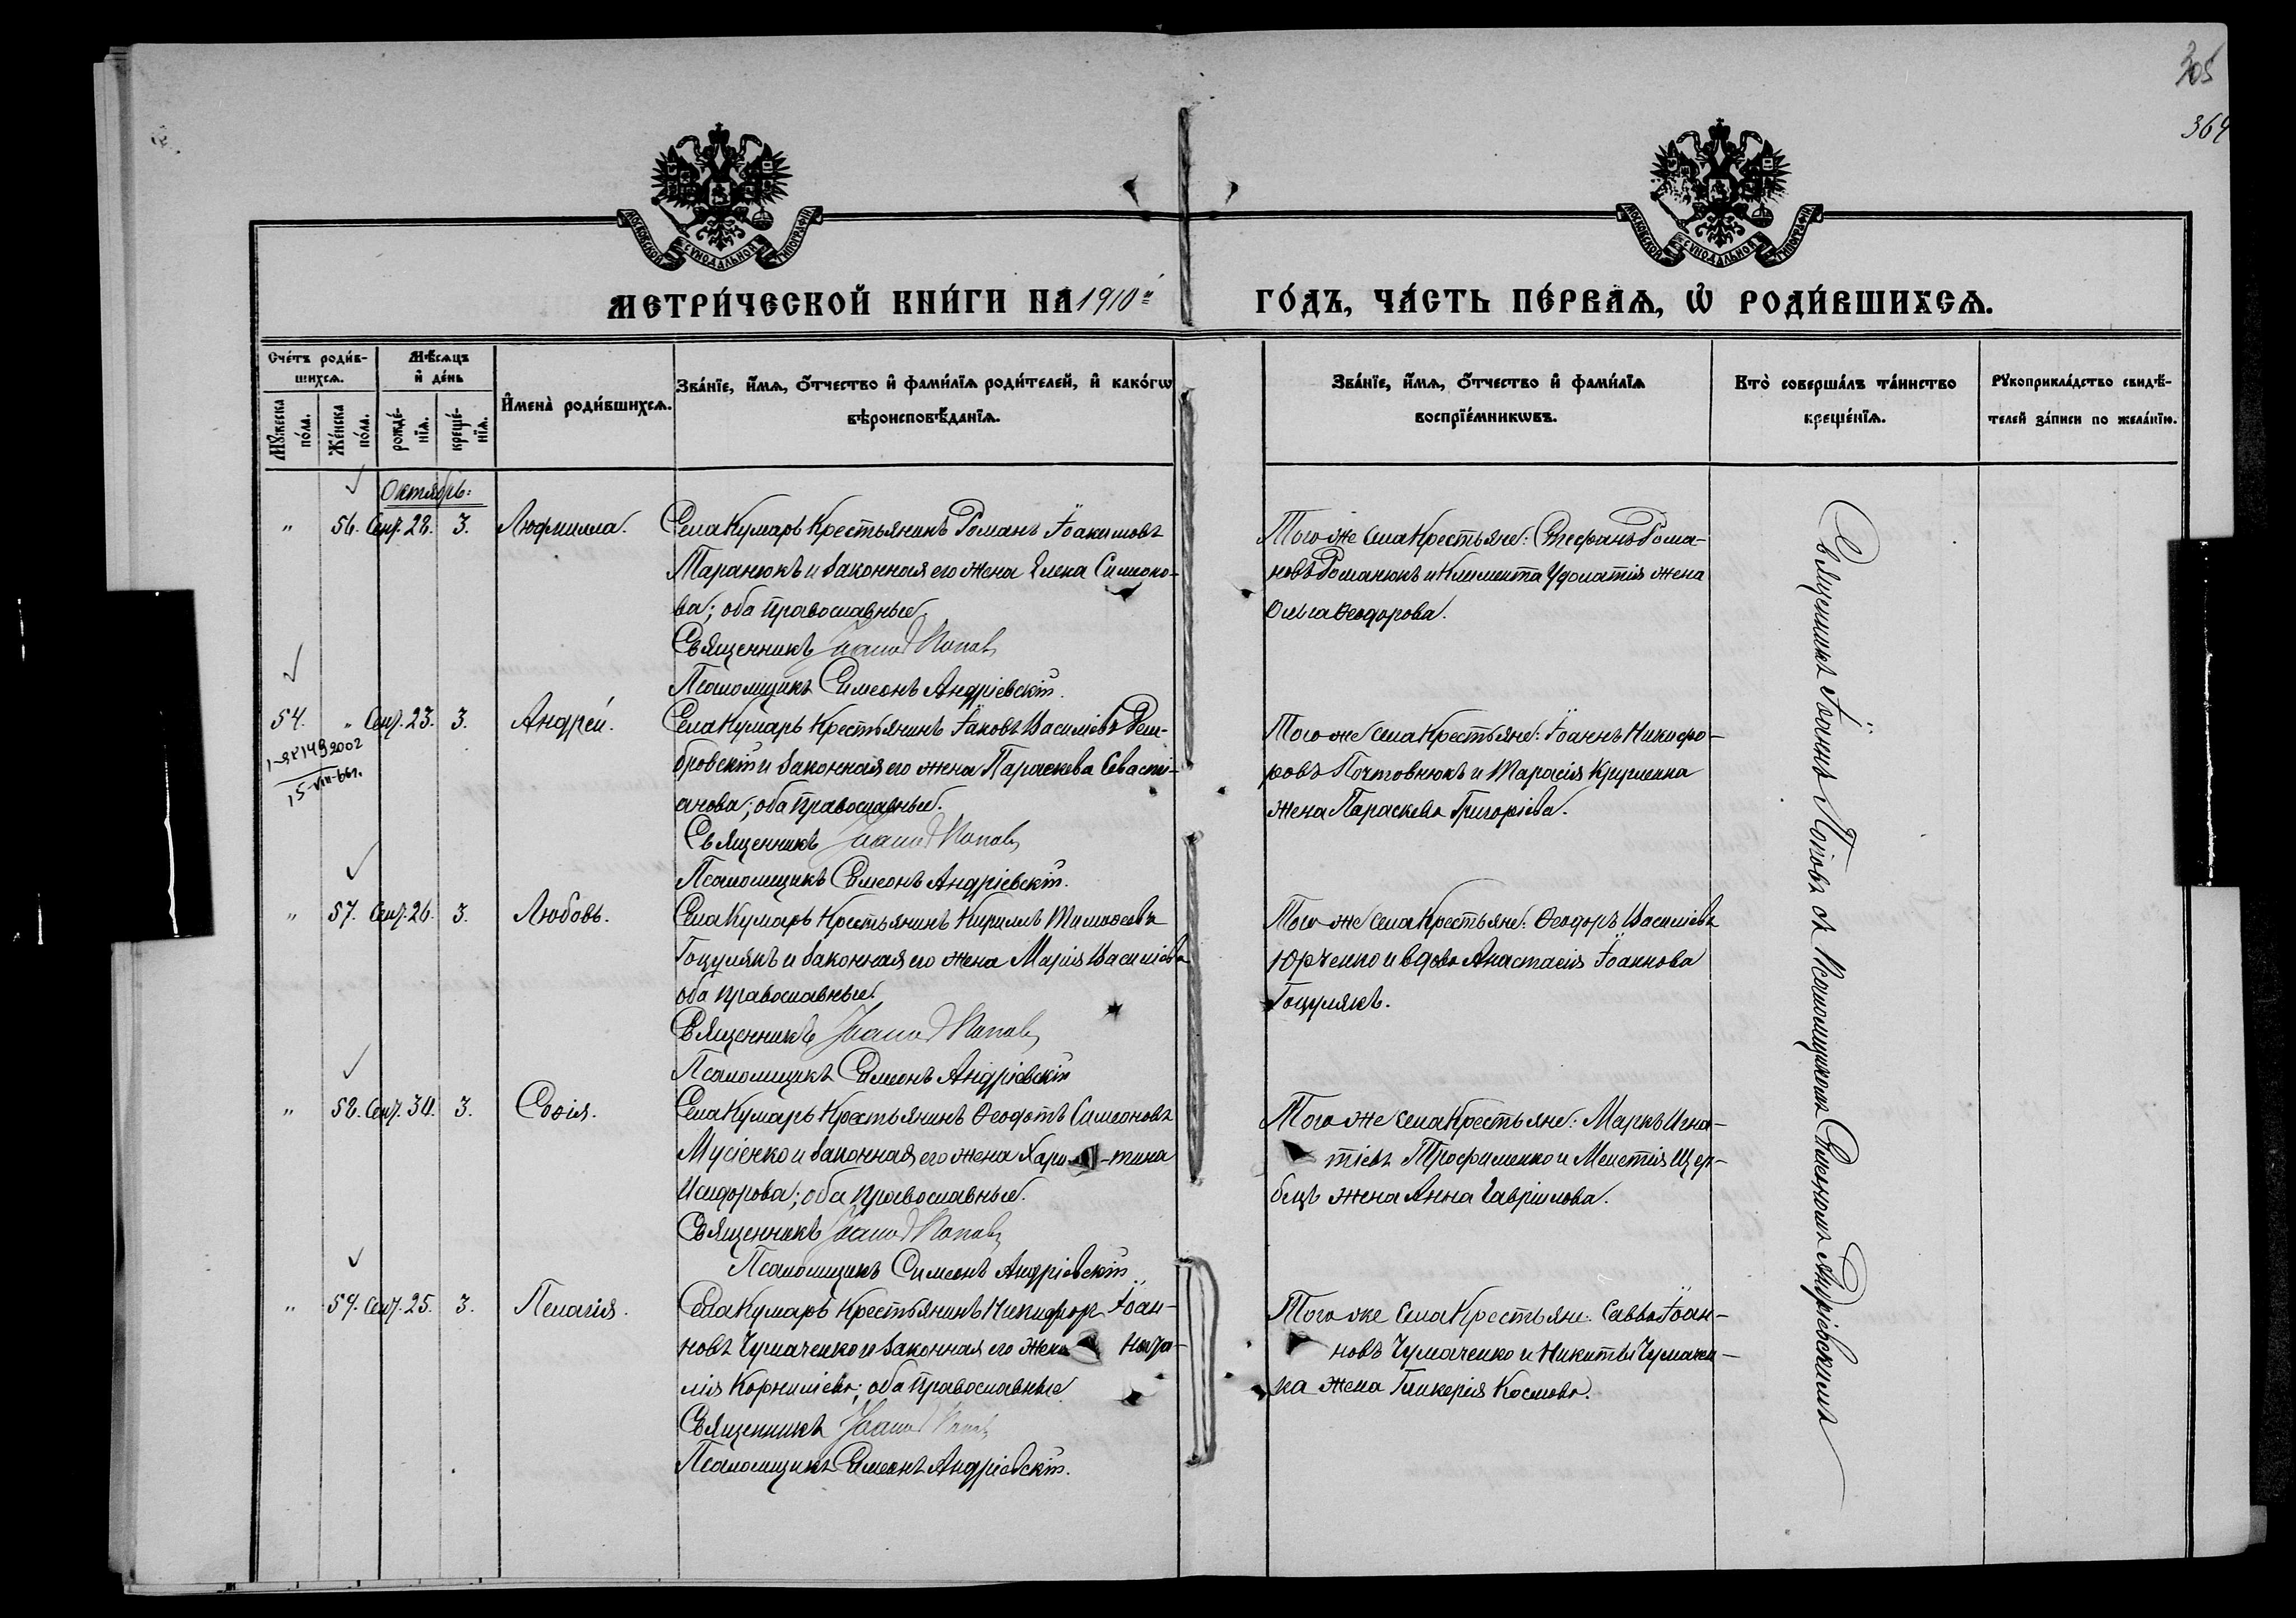 305
364
МОСКОВСКОЙ СѴНОДАЛЬНОЙ ТИПОГРАФІИ
МОСКОВСКОЙ СѴНОДАЛЬНОЙ ТИПОГРАФІИ
МЕТРИ́ЧЕСКОЙ КНИ́ГИ НА 1910й ГО́ДЪ, ЧА́СТЬ ПЕ́РВАѦ, Ѡ РОДИ́ВШИХСѦ.
Сче́тъ роди́в-
шихсѧ.
Мѣ́сѧцъ
и҆ де́нь
Мꙋ́жеска
по́ла.
Же́нска
по́ла.
рожде́-
нїѧ.
креще́-
нїѧ.
И҆мена̀ роди́вшихсѧ.
Зва́нїе, и҆́мѧ, ѻ҆́тчество и҆ фами́лїѧ роди́телей, и҆ како́гѡ
вѣроисповѣ́данїѧ.
Зва́нїе, и҆́мѧ, ѻ҆́тчество и҆ фами́лїѧ
воспрїе́мникѡвъ.
Кто̀ соверша́лъ та́инство
креще́нїѧ.
Рꙋкоприкла́дство свидѣ́-
телей за́писи по жела́нїю.
Октябрь:
" 56. Сент. 28. 3. Людмилла.
Села Кумаръ Крестьянинъ Романъ Іоакимовъ
Таранюкъ и законная его жена Елена Симеоно-
ва; оба православные.
Священникъ Іоаннъ Поповъ
Псаломщикъ Симеонъ Андріевскій.
Того же села Крестьяне: Стефанъ Рома-
новъ Романюкъ и Климента жена
Ольга Ѳеодорова.
54. " Сент. 23. 3. Андрей.
1-ЯК 149 2002
15-VIII-66г.
Села Кумаръ Крестьянинъ Іаковъ Василіевъ Дем-
бровскій и законная его жена Параскева Севасті-
анова; оба православные.
Священникъ Іоаннъ Поповъ
Псаломщикъ Симеонъ Андріевскій.
Того же села Крестьяне: Іоаннъ Никифо-
ровъ Почтовнюкъ и Тарасія Кругленка
жена Параскева Григоріева.
" 57. Сент. 26. 3. Любовь.
Села Кумаръ Крестьянинъ Кириллъ Тимоѳеевъ
Гоцулякъ и законная его жена Марія Василіева
оба православные.
Священникъ Іоаннъ Поповъ
Псаломщикъ Симеонъ Андріевскій
Того же села Крестьяне: Ѳеодоръ Василіевъ
Юрченко и вдова Анастасія Іоаннова
Гоцулякъ.
" 58. Сент. 30. 3. Софія.
Села Кумаръ Крестьянинъ Ѳеодотъ Симеоновъ
Мусіенко и законная его жена Хари-тина
Исидорова; оба православные.
Священникъ Іоаннъ Поповъ
Псаломщикъ Симеонъ Андріевскій
Того же села Крестьяне: Маркъ Игна-
тіевъ Трофименко и Мелетія Щер-
бецъ жена Анна Гавріилова.
" 59. Сент. 25. 3. Пелагія.
Села Кумаръ Крестьянинъ Никифоръ Іоан-
новъ Чумаченко и законная его жена Ната-
лія Корниліева; оба православные
Священникъ Іоаннъ Поповъ
Псаломщикъ Симеонъ Андріевскій.
Того же села Крестьяне: Савва Іоан-
новъ Чумаченко и Никиты Чумачен-
ка жена Гликерія Космова.
Священникъ Іоаннъ Поповъ съ Псаломщикомъ Симеономъ Андріевскимъ